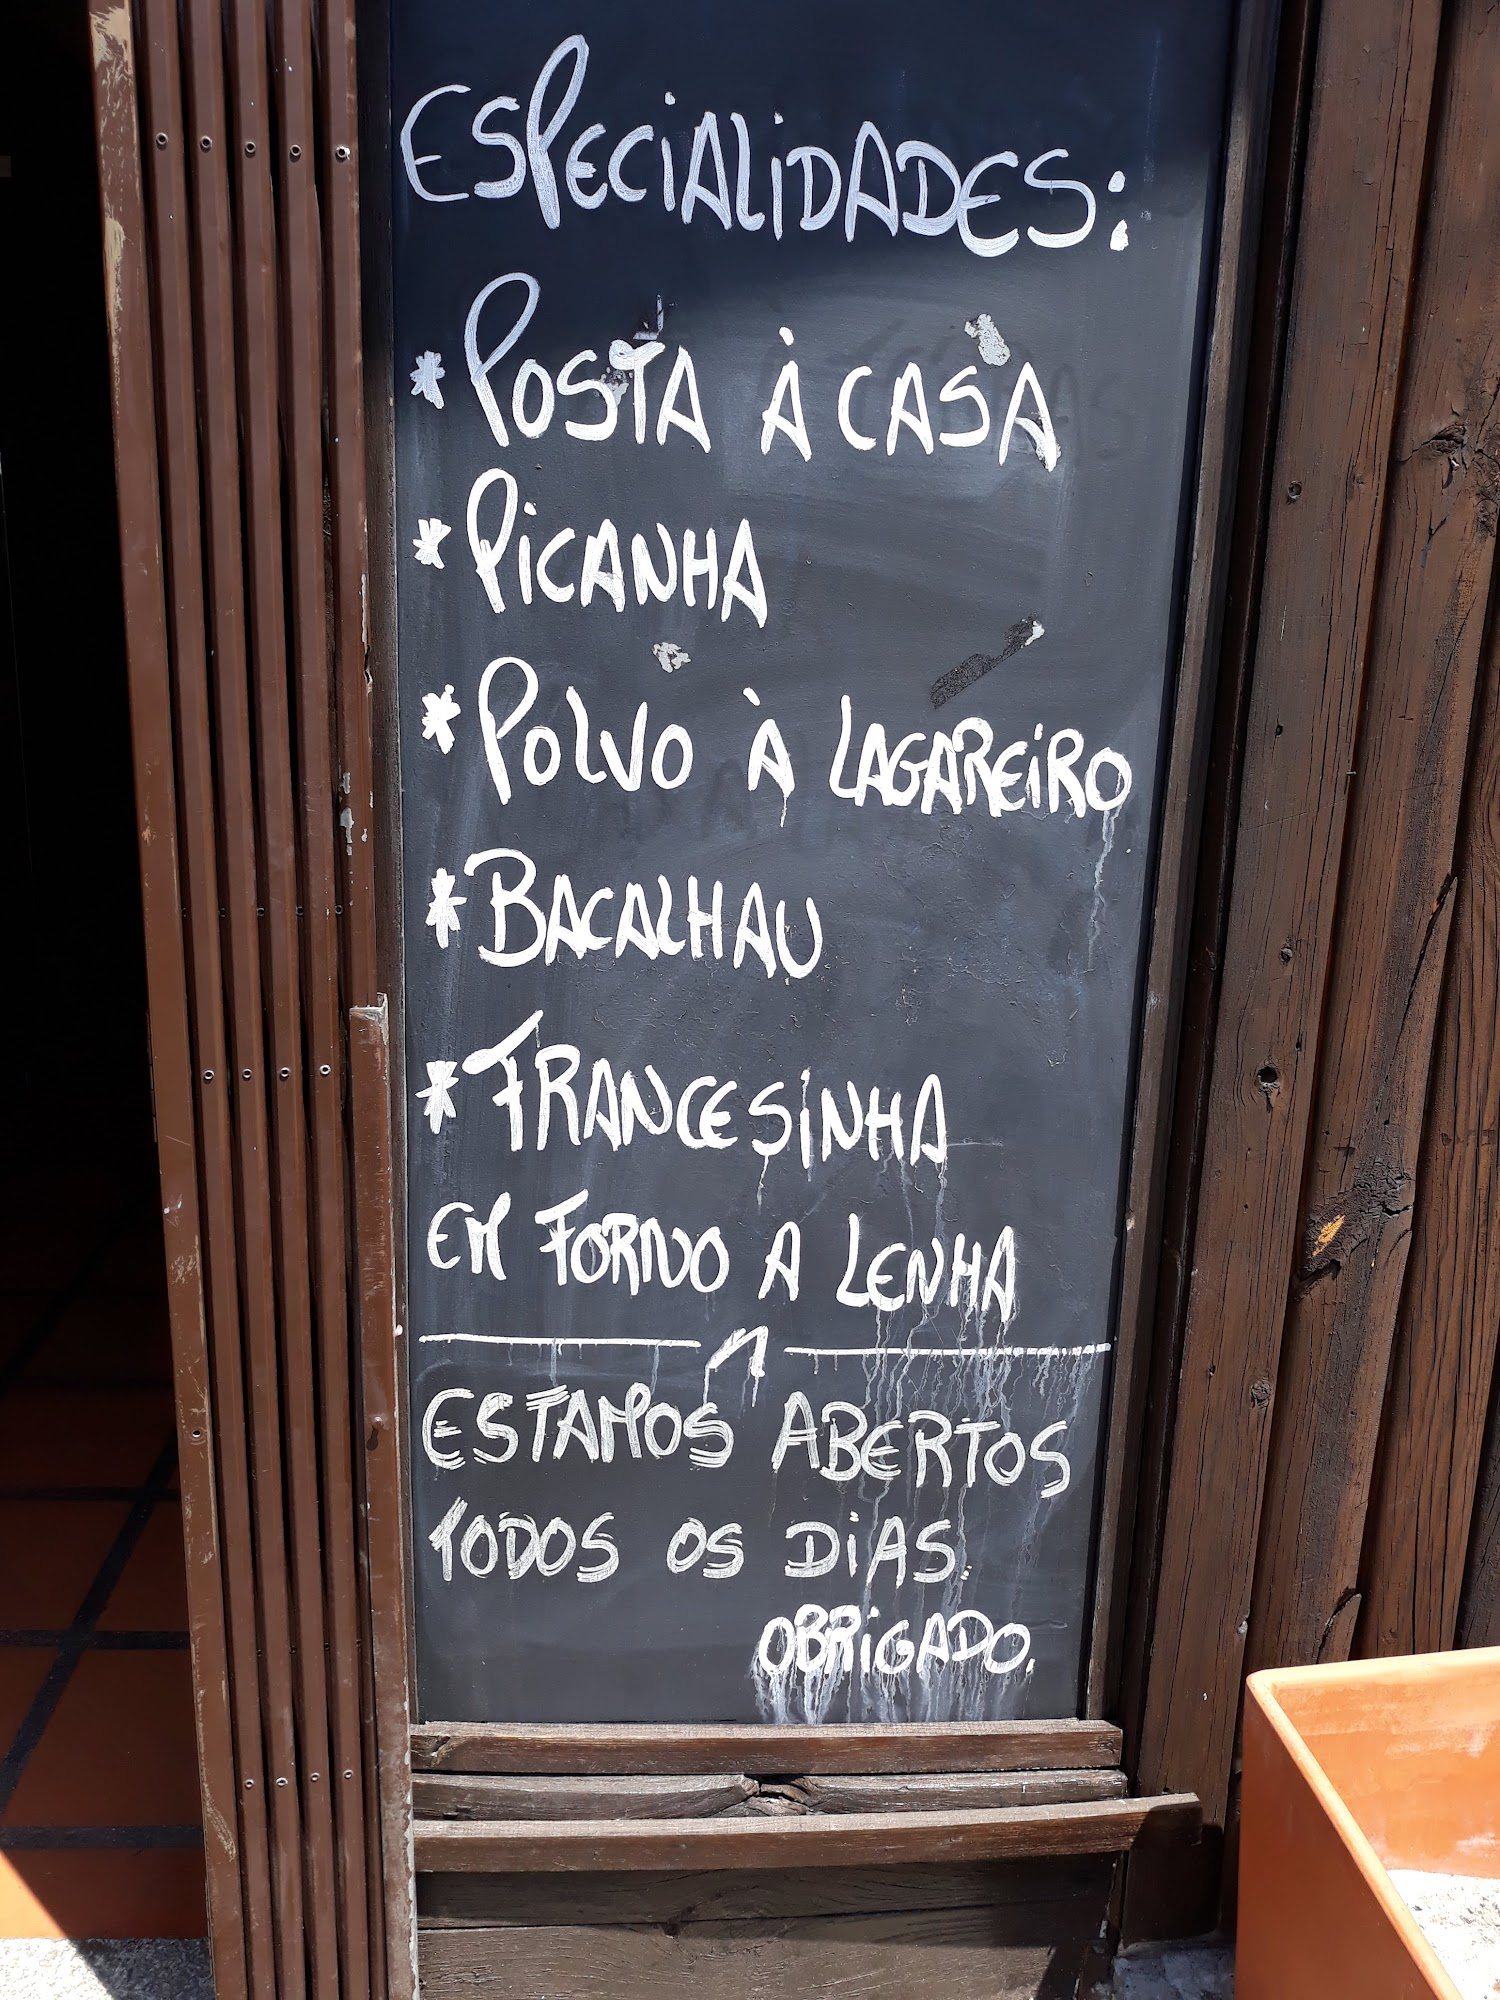 ESPECIALIDADES:
* POSTA À CASA
* PICANHA
* POLVO À LAGAREIRO
* BACALHAU
* FRANCESINHA
EM FORNO A LENHA
ESTAMOS ABERTOS
TODOS OS DIAS.
OBRIGADO.